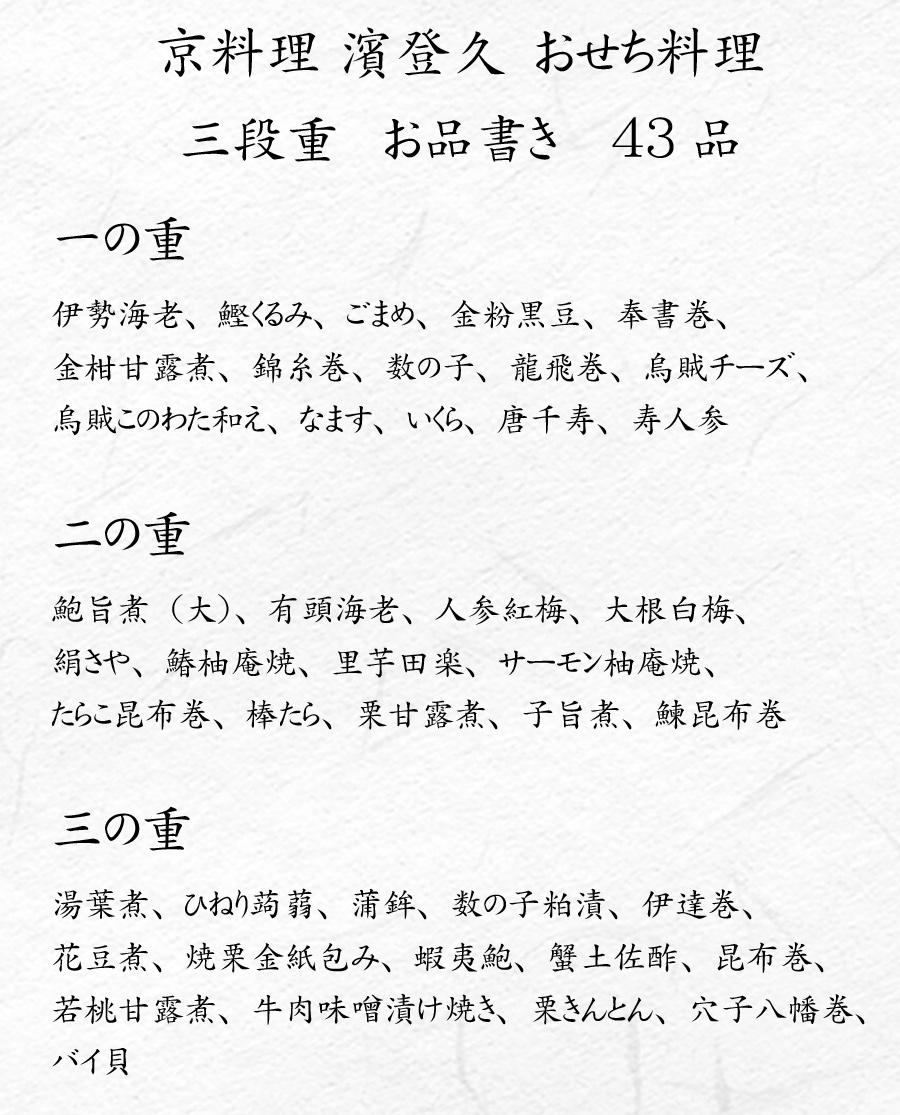 京料理 濱登久 おせち料理
三段重 お品書き 43品
一の重
伊勢海老、鰹くるみ、ごまめ、金粉黒豆、奉書巻、
金柑甘露煮、錦糸巻、数の子、龍飛巻、烏賊チーズ、
烏賊このわた和え、なます、いくら、唐千寿、寿人参
二の重
鮑旨煮（大）、有頭海老、人参紅梅、大根白梅、
絹さや、鰆柚庵焼、里芋田楽、サーモン柚庵焼、
たらこ昆布巻、棒たら、栗甘露煮、子旨煮、鰊昆布巻
三の重
湯葉煮、ひねり蒟蒻、蒲鉾、数の子粕漬、伊達巻、
花豆煮、焼栗金紙包み、蝦夷鮑、蟹土佐酢、昆布巻、
若桃甘露煮、牛肉味噌漬け焼き、栗きんとん、穴子八幡巻、
バイ貝